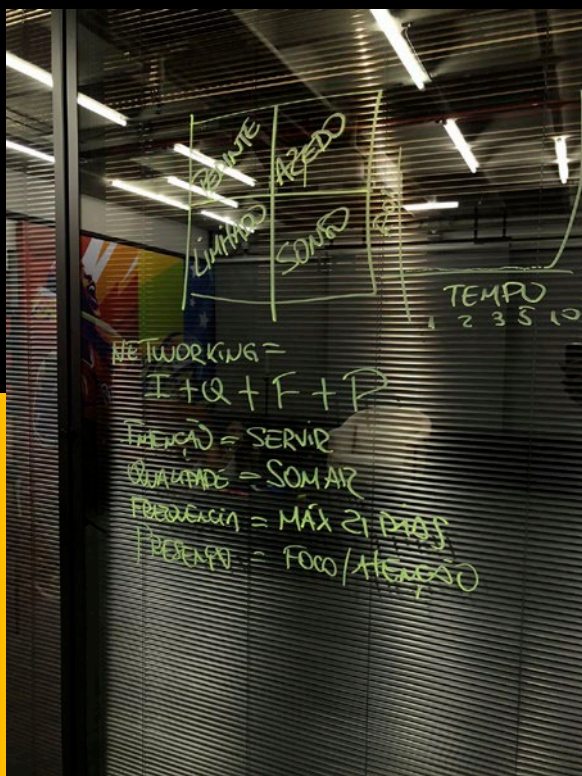 AZEDO
LIMITADO
SONSO
TEMPO
1 2 3 5 10
NETWORKING =
I + Q + F + P
INTENÇÃO = SERVIR
QUALIDADE = SOMAR
FREQUENCIA = MÁX 21 DIAS
PRESENÇA = FOCO/ATENÇÃO